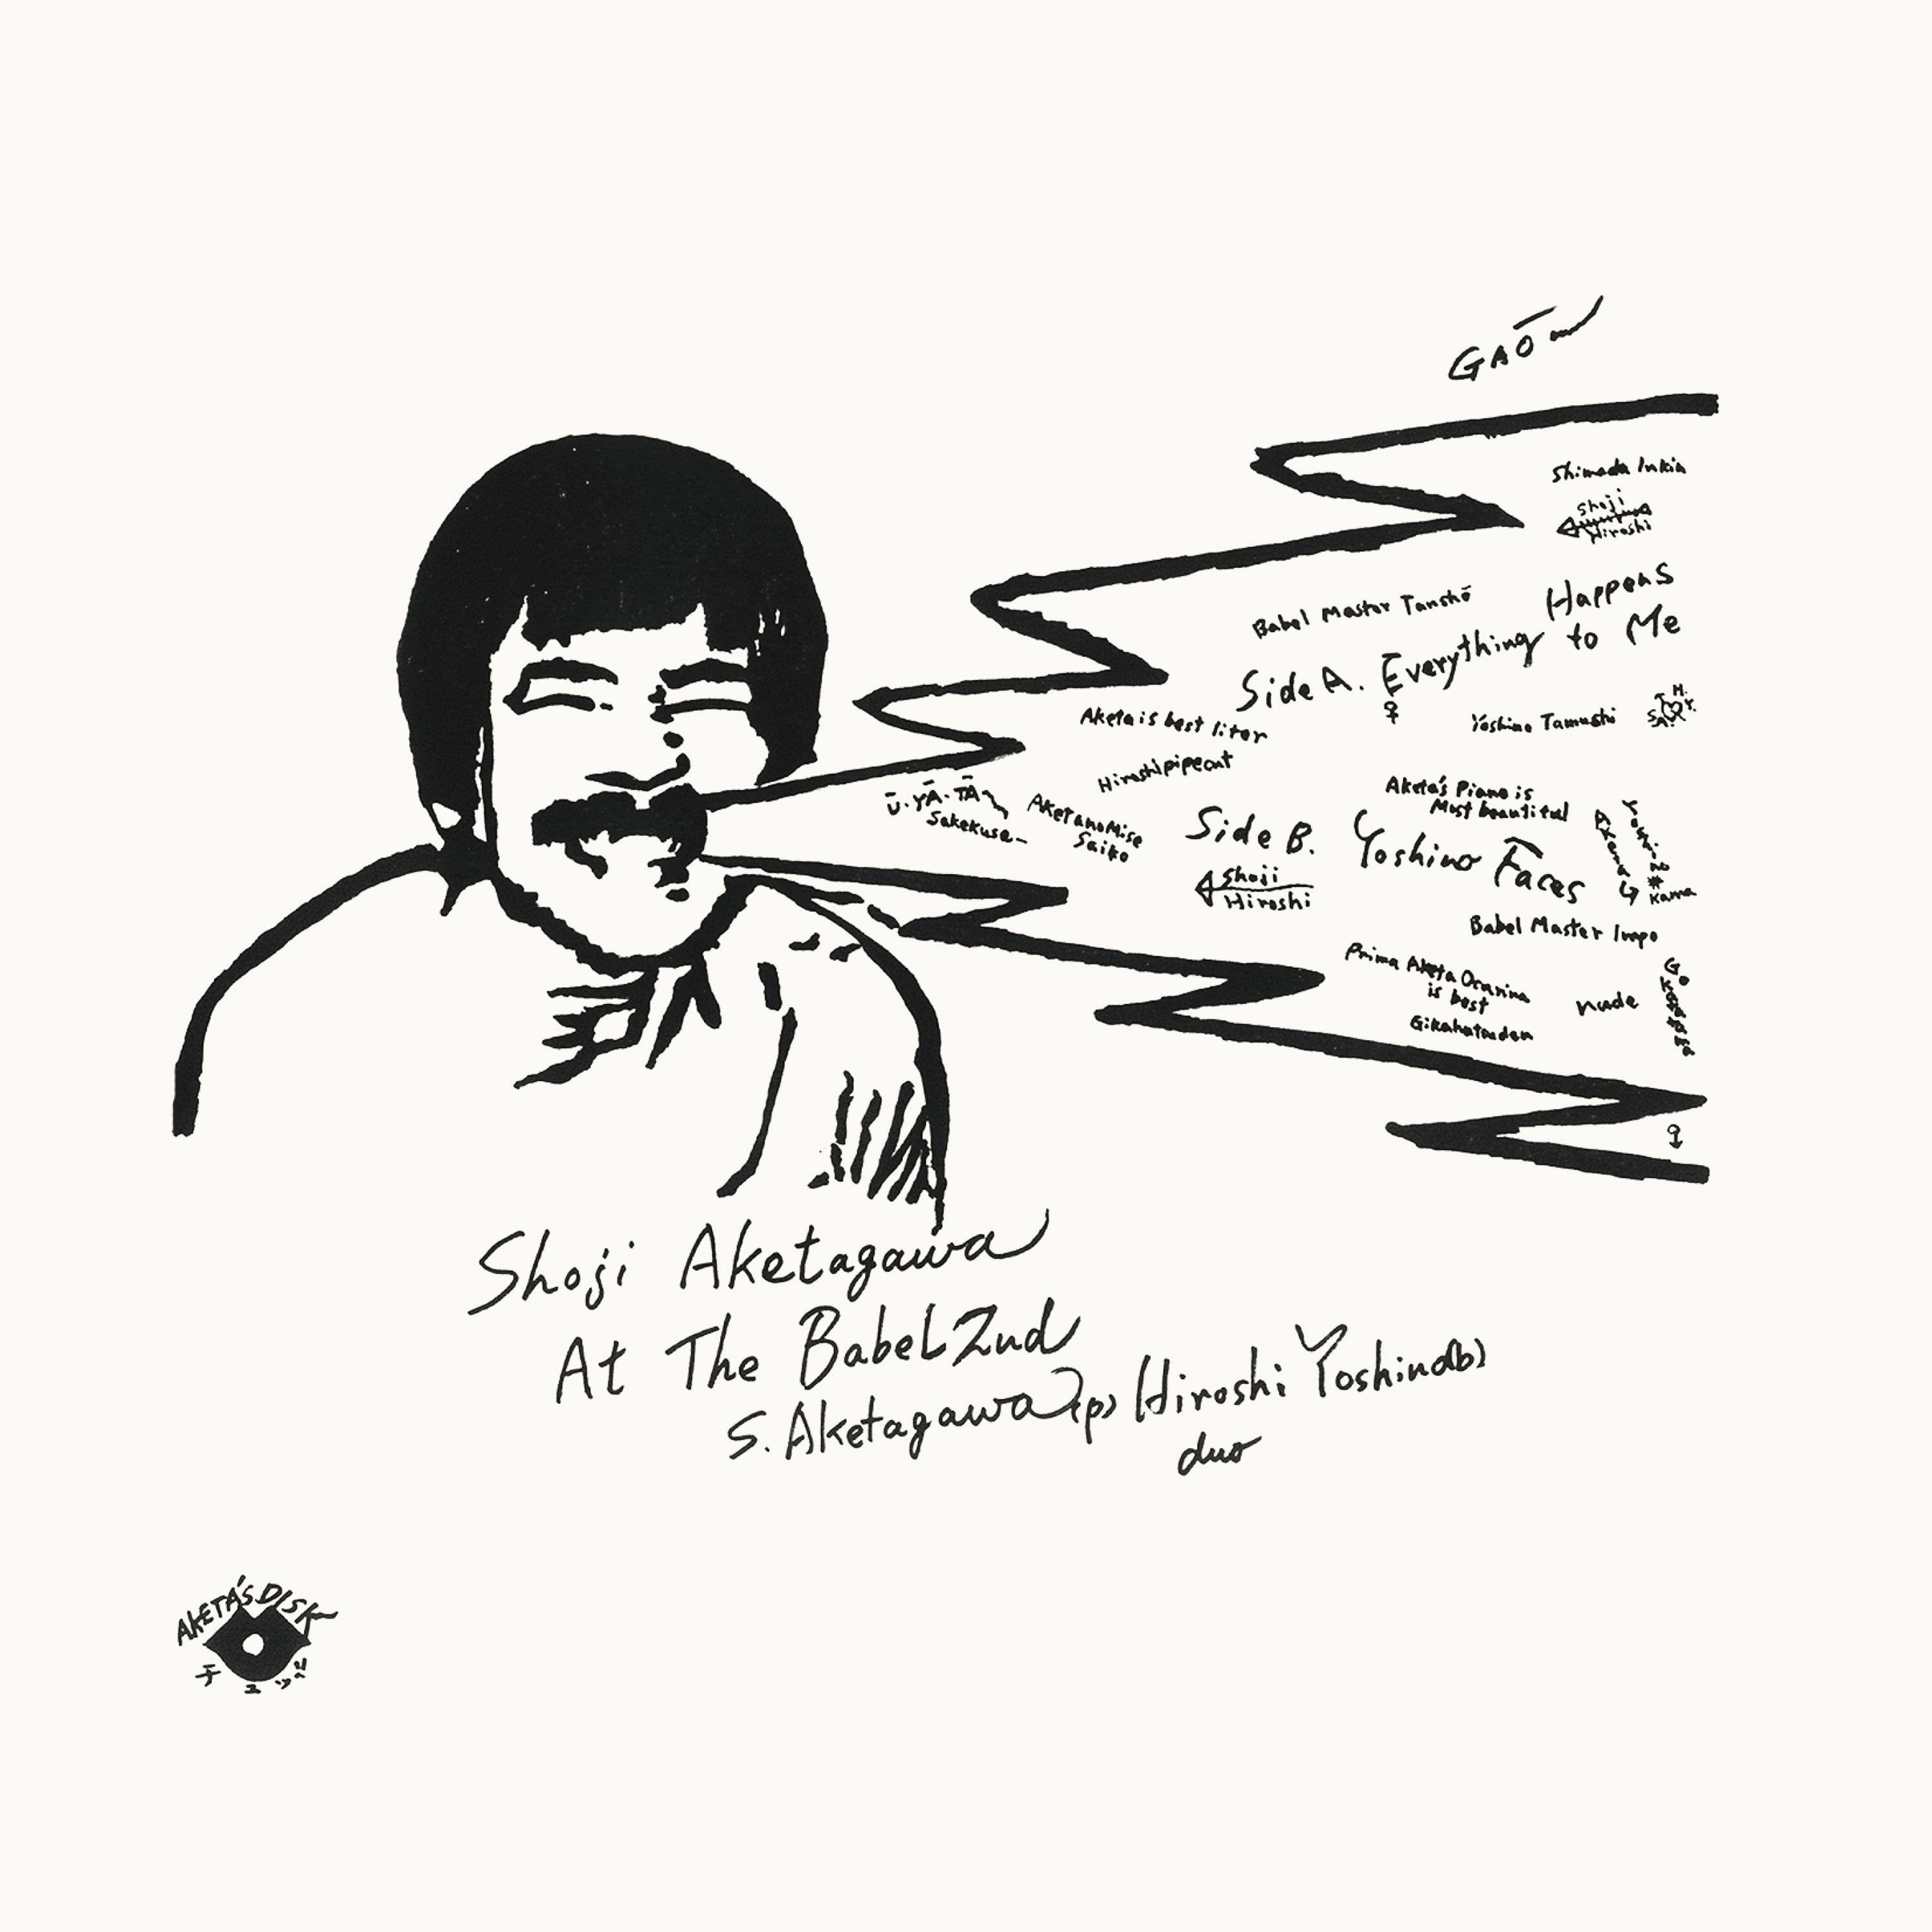 GAŌ
Shimada Inkin
Shoji
Hiroshi
Babel Master Tanshō
Happens
Side A. Everything to Me
H.
T Y.
S.A.
Aketa is best liter
Yoshino Tamushi
Hiroshi pipecut
Ū・YĀ・TĀ
Sakekuse
AketanoMise
Saiko
Aketa's Piano is
Most beautiful
Side B. Yoshino Faces
Shoji
Hiroshi
Aketa
Yoshino
Kama
Babel Master Impo
Prima Aketa Ocarina
is best
nude
Gikahataiden
Shoji Aketagawa
At The Babel 2nd
S. Aketagawa (p) Hiroshi Yoshino (b)
duo
AKETA'S DISK
チェッ!!